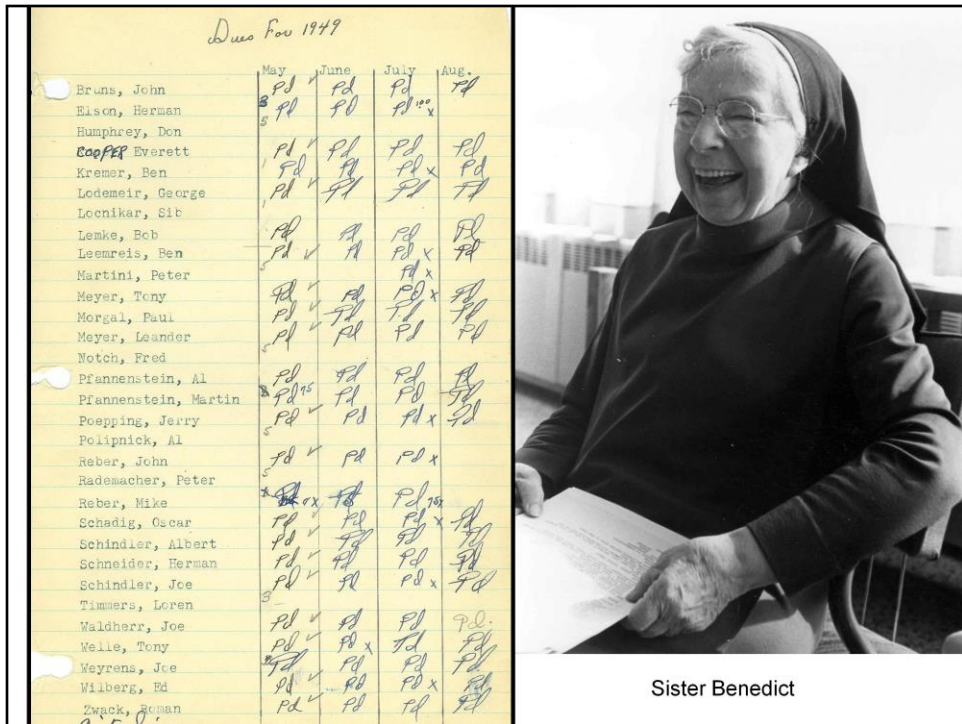 Dues For 1949
May June July Aug.
Bruns, John Pd ✓ Pd Pd Pd
Elson, Herman Pd Pd Pd 1.00 x
Humphrey, Don
COOPER Everett Pd ✓ Pd Pd Pd
Kremer, Ben Pd Pd Pd x Pd
Lodemeir, George Pd ✓ Pd Pd Pd
Locnikar, Sib
Lemke, Bob Pd Pd Pd Pd
Leemreis, Ben Pd ✓ Pd Pd x Pd
Martini, Peter Pd x
Meyer, Tony Pd ✓ Pd Pd x Pd
Morgal, Paul Pd ✓ Pd Pd Pd
Meyer, Leander Pd ✓ Pd Pd Pd
Notch, Fred
Pfannenstein, Al Pd Pd Pd Pd
Pfannenstein, Martin Pd 75 Pd Pd Pd
Poepping, Jerry Pd ✓ Pd Pd x Pd
Polipnick, Al
Reber, John Pd ✓ Pd Pd x
Rademacher, Peter
Reber, Mike Pd Pd 75x
Schadig, Oscar Pd ✓ Pd Pd x Pd
Schindler, Albert Pd ✓ Pd Pd Pd
Schneider, Herman Pd ✓ Pd Pd Pd
Schindler, Joe Pd ✓ Pd Pd x Pd
Timmers, Loren
Waldherr, Joe Pd ✓ Pd Pd Pd.
Welle, Tony Pd ✓ Pd x Pd Pd
Weyrens, Joe Pd Pd Pd Pd
Wilberg, Ed Pd ✓ Pd Pd x Pd
Zwack, Roman Pd ✓ Pd Pd Pd
Sister Benedict